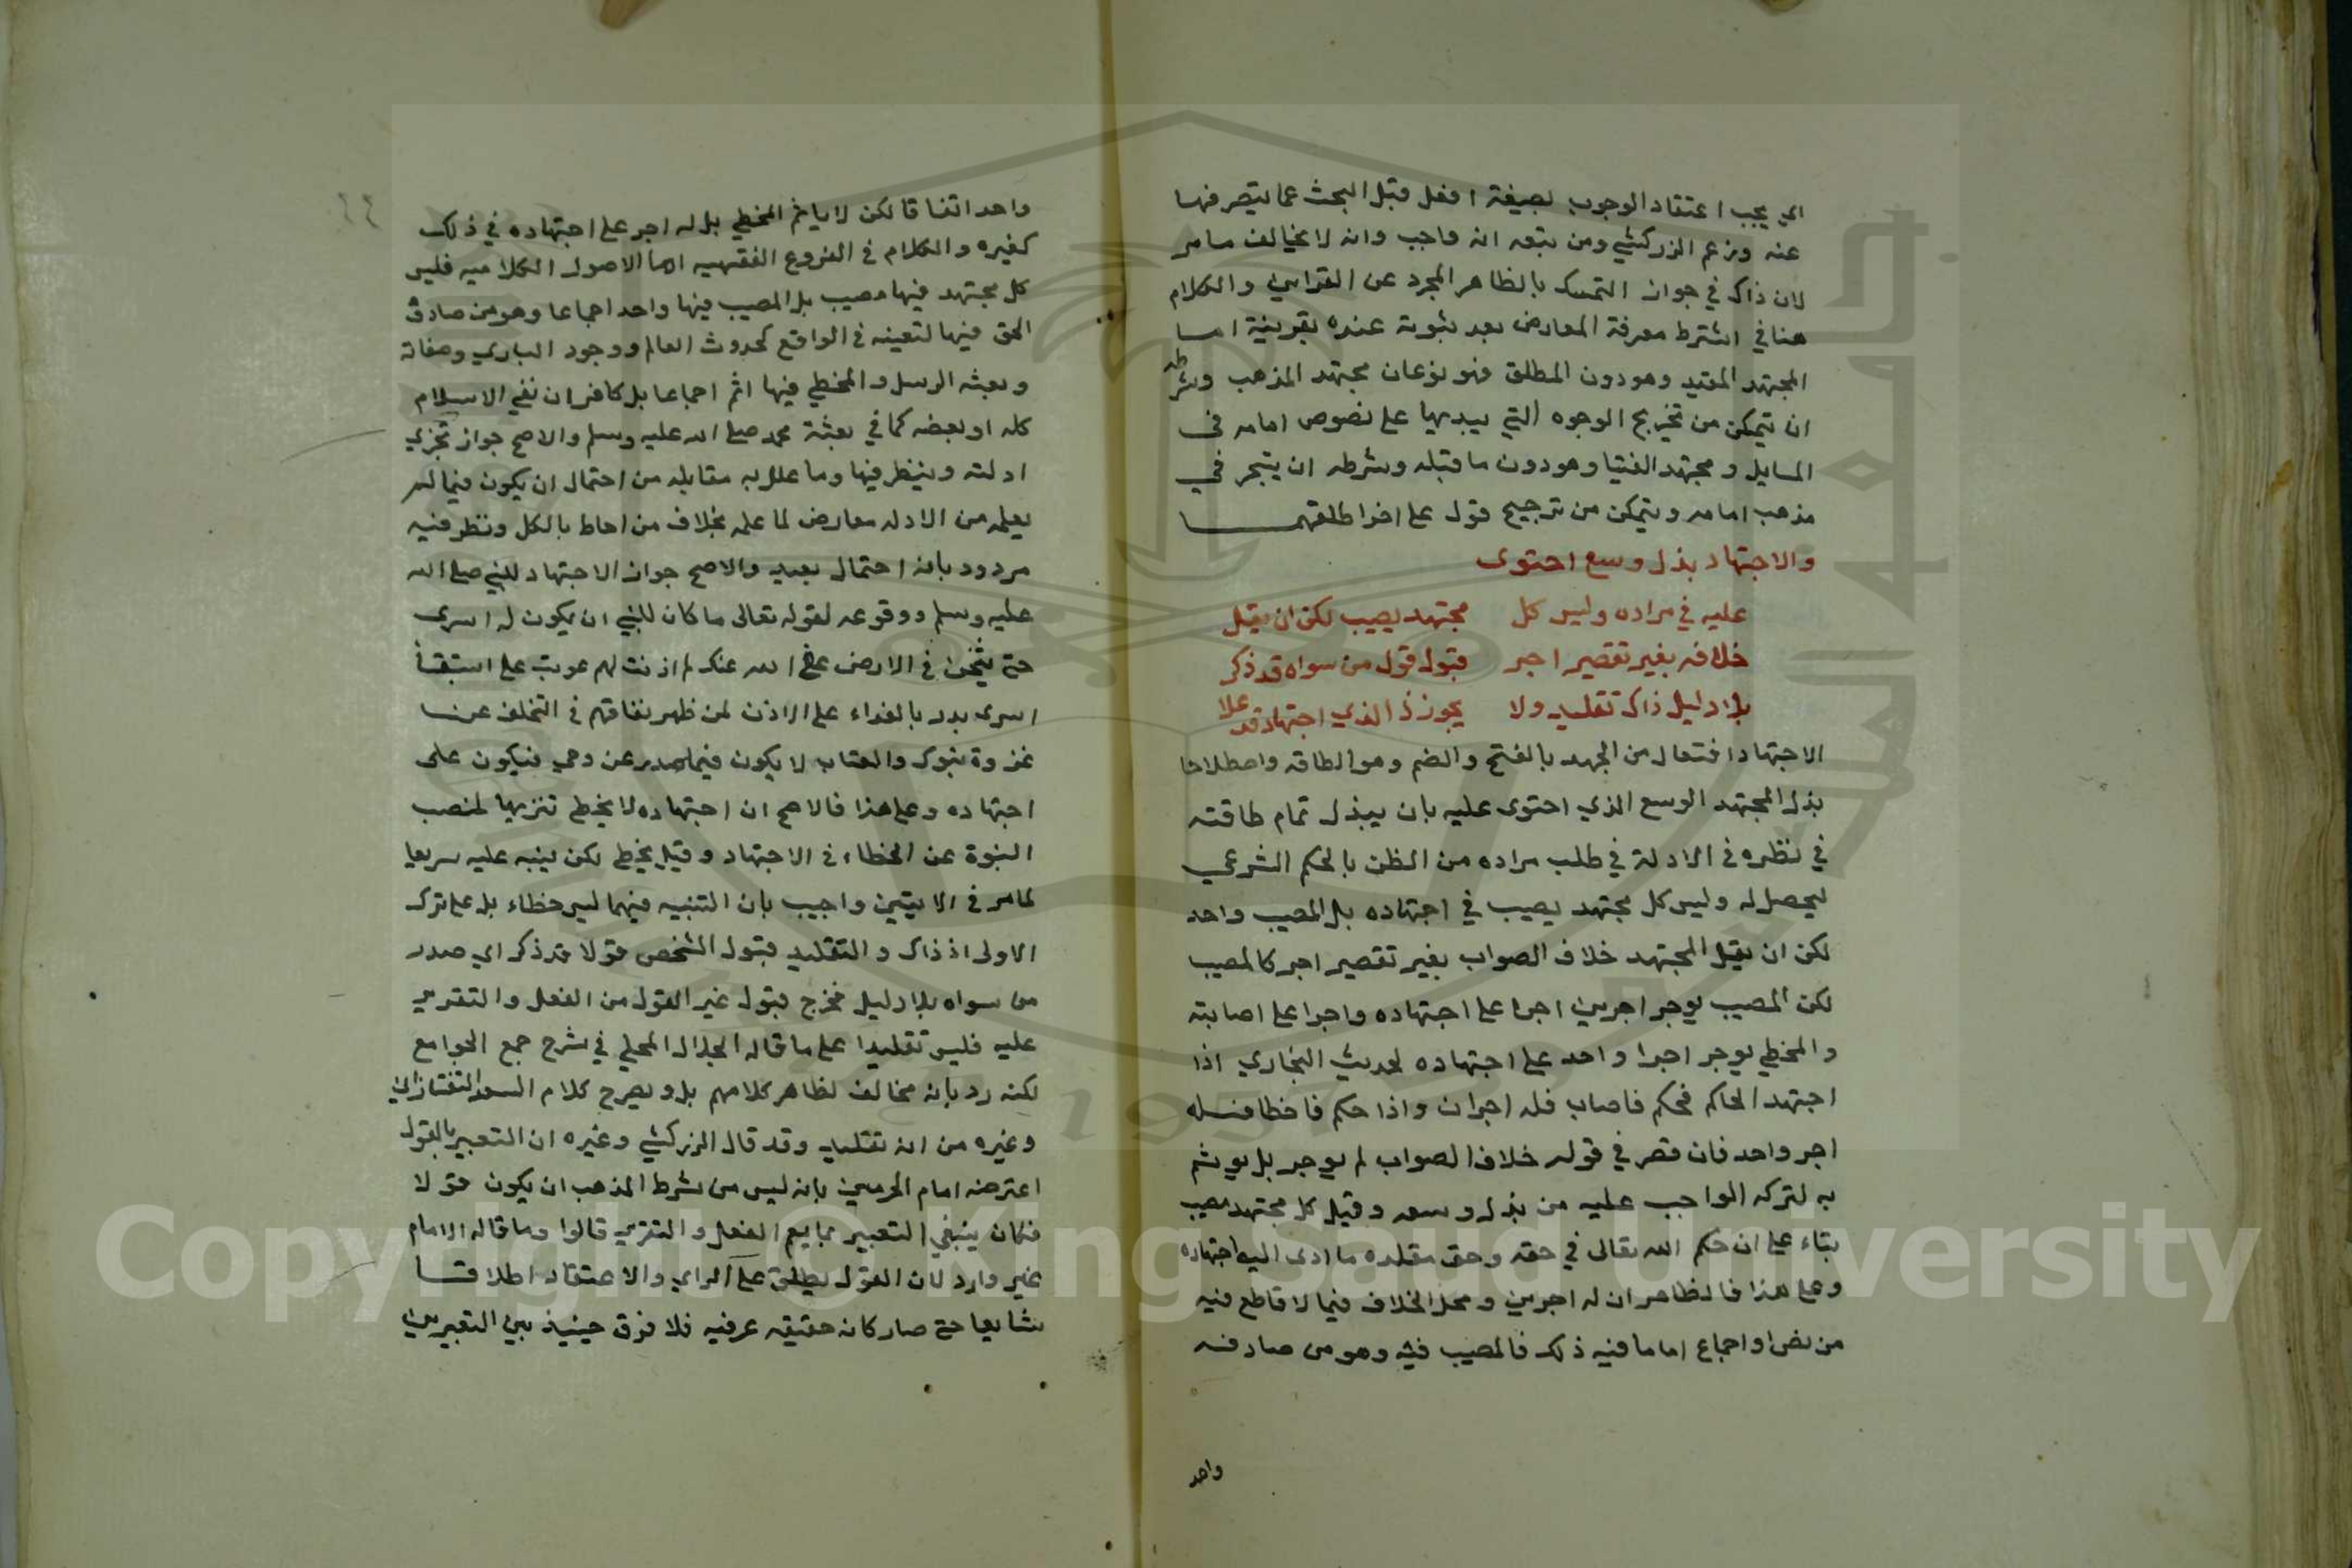 اي يجب اعتقاد الوجوب بصيغة افعل قبل البحث عما يصرفها
عنه وزعم الزركشي ومن تبعه انه واجب وانه لا يخالف ما مر
لان ذاك في جواز التمسك بالظاهر المجرد عن القراين والكلام
هنا في اشترط معرفة المعارض بعد ثبوته عنده بقرينة اما
المجتهد المقيد وهو دون المطلق فنوعان مجتهد المذهب وشرطه
ان يتمكن من تخريج الوجوه التي يبديها على نصوص امامه في
المسايل و مجتهد الفتيا وهو دون ما قبله وشرطه ان يتبحر في
مذهب امامه ويتمكن من ترجيح قول على اخر اطلقهما
والاجتهاد بذل وسع احتوى
عليه في مراده وليس كل مجتهد يصيب لكن ان يقل
خلافه بغير تقصير اجر قبول قول من سواه قد ذكر
بلا دليل ذاك تقليد ولا يجوز ذا لذي اجتهاد قد علا
الاجتهاد افتعال من الجهد بالفتح والضم وهو الطاقه واصطلاحا
بذل المجتهد الوسع الذي احتوى عليه بان يبذل تمام طاقته
في نظره في الادلة في طلب مراده من الظن بالحكم الشرعي
ليحصل له وليس كل مجتهد يصيب في اجتهاده بل المصيب واحد
لكن ان يقل المجتهد خلاف الصواب بغير تقصير اجر كالمصيب
لكن المصيب يوجر اجرين اجرا على اجتهاده واجرا على اصابته
والمخطي يوجر اجرا واحد على اجتهاده لحديث البخاري اذا
اجتهد الحاكم فحكم فاصاب فله اجران واذا حكم فاخطا فله
اجر واحد فان قصر في قوله خلاف الصواب لم يوجر بل يوثم
به لتركه الواجب عليه من بذل وسعه وقيل كل مجتهد مصيب
بناء على ان حكم الله تعالى في حقه وحق مقلده ما ادى اليه اجتهاده
وعلى هذا فالظاهر ان له اجرين ومحل الخلاف فيما لا قاطع فيه
من نص او اجماع اما ما فيه ذلك فالمصيب فيه وهو من صادفه
واحد
واحد اتفاقا لكن لا ياثم المخطي بل له اجر على اجتهاده في ذلك
كغيره والكلام في الفروع الفقهيه اما الاصول الكلاميه فليس
كل مجتهد فيها مصيب بل المصيب فيها واحد اجماعا وهو من صادف
الحق فيها لتعينه في الواقع كحدوث العالم ووجود الباري وصفاته
وبعثه الرسل والمخطي فيها اثم اجماعا بل كافر ان نفي الاسلام
كله او بعضه كما في بعثة محمد صلى الله عليه وسلم والاصح جواز تجزي
ادلته وينظر فيها وما علل به مقابله من احتمال ان يكون فيما لم
يعلمه من الادله معارض لما علمه بخلاف من احاط بالكل ونظر فيه
مردود بانه احتمال بعيد والاصح جواز الاجتهاد للنبي صلى الله
عليه وسلم ووقوعه لقوله تعالى ما كان للنبي ان يكون له اسرى
حتى يثخن في الارض عفى الله عنك لم اذنت لهم عوتب على استبقأ
اسرى بدر بالفداء على الاذن لمن ظهر نفاقهم في التخلف عن
غزوة تبوك والعتاب لا يكون فيما صدر عن وحي فيكون على
اجتهاده وعلى هذا فالاصح ان اجتهاده لا يخطي تنزيها لمنصب
النبوة عن الخطاء في الاجتهاد وقيل يخطي لكن ينبه عليه سريعا
لما مر في الايتين واجيب بان التنبيه فيهما ليس خطاء بل على ترك
الاولى اذ ذاك والتقليد قبول الشخص قولا قد ذكر اي صدر
من سواه بلا دليل فخرج قبول غير القول من الفعل والتقرير
عليه فليس تقليدا على ما قاله الجلال المحلي في شرح جمع الجوامع
لكنه رد بانه مخالف لظاهر كلامهم بل ويصرح كلام السعد التفتازاني
وغيره من انه تقليد وقد قال الزركشي وغيره ان التعبير بالقول
اعترضه امام الحرمين بانه ليس من شرط المذهب ان يكون قولا
فكان ينبغي التعبير بما يعم الفعل والتقرير قالوا وما قاله الامام
غير وارد لان القول يطلق على الراي والاعتقاد اطلاقا
شايعا حتى صار كانه حقيقه عرفيه فلا فرق حينيذ بين التعبيرين
Copyright © King Saud University
1957